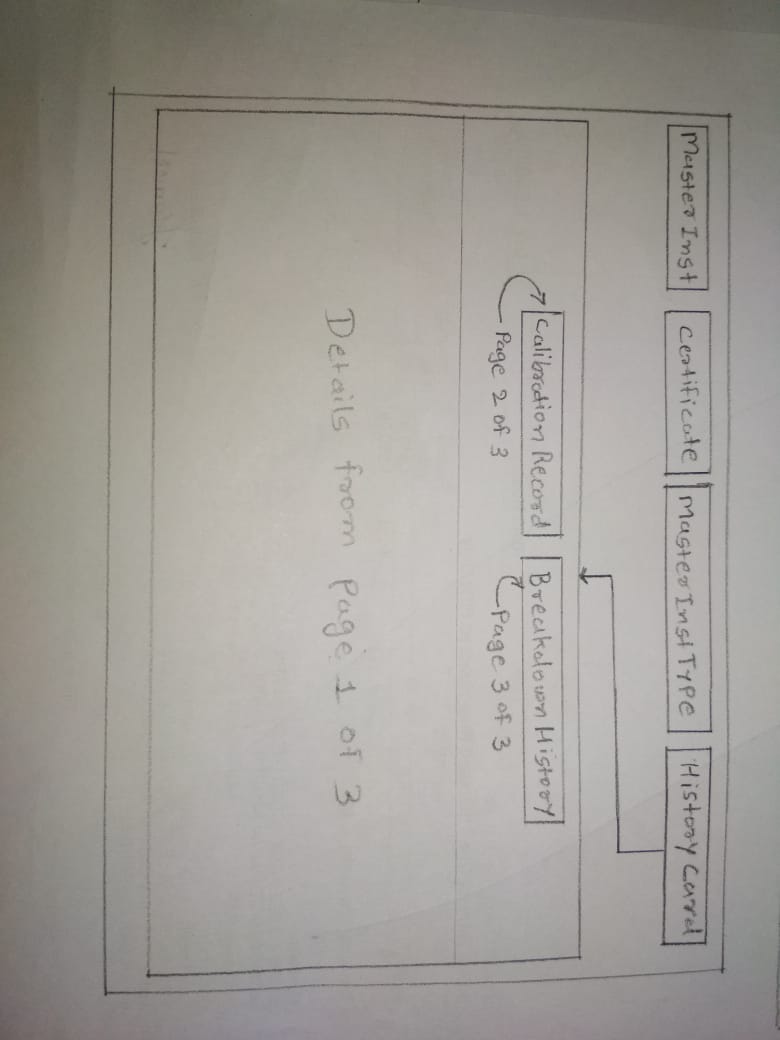 Master Inst
Certificate
Master Inst Type
History Card
Calibration Record
Breakdown History
Page 2 of 3
Page 3 of 3
Details from Page 1 of 3